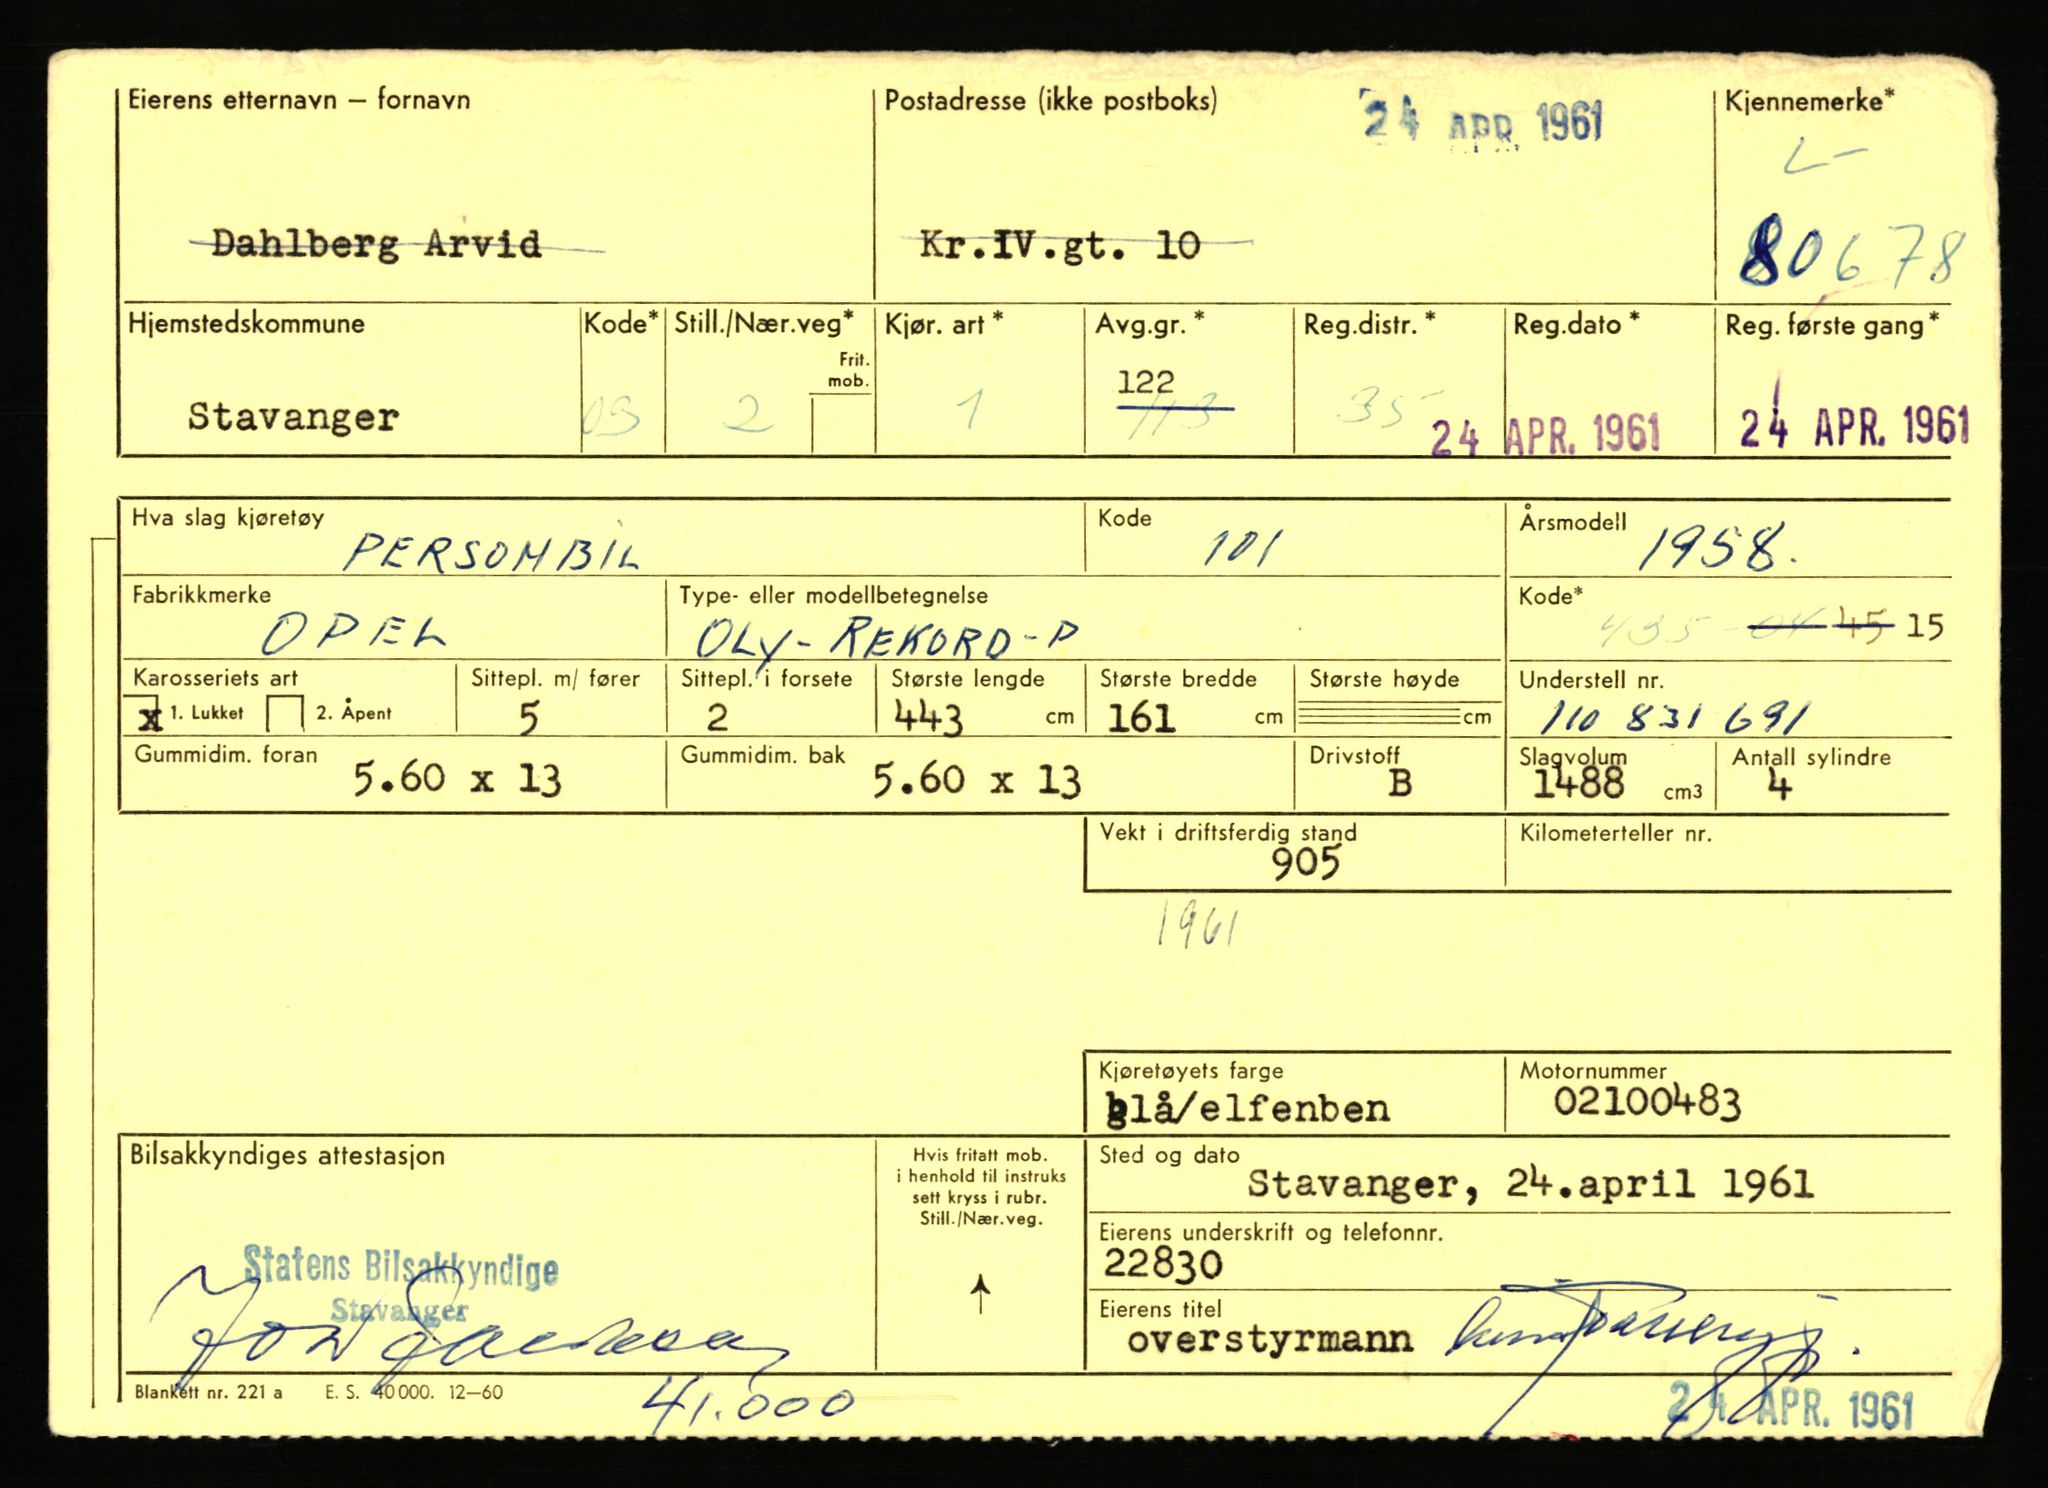 Eierens etternavn – fornavn Postadresse (ikke postboks) 24 APR. 1961 Kjennemerke*
L-
Dahlberg Arvid Kr.IV.gt. 10 80678
Hjemstedskommune Kode* Still./Nær.veg* Kjør. art* Avg.gr.* Reg.distr.* Reg.dato* Reg. første gang*
Frit.
mob.
122
Stavanger 03 2 1 113 35 24 APR. 1961 24 APR. 1961
Hva slag kjøretøy Kode Årsmodell
PERSONBIL 101 1958.
Fabrikkmerke Type- eller modellbetegnelse Kode*
OPEL OLY-REKORD-P 435-04 45 15
Karosseriets art Sittepl. m/ fører Sittepl. i forsete Største lengde Største bredde Største høyde Understell nr.
x 1. Lukket 2. Åpent 5 2 443 cm 161 cm cm 110 831 691
Gummidim. foran Gummidim. bak Drivstoff Slagvolum Antall sylindre
5.60 x 13 5.60 x 13 B 1488 cm3 4
Vekt i driftsferdig stand Kilometerteller nr.
905
1961
Kjøretøyets farge Motornummer
blå/elfenben 02100483
Bilsakkyndiges attestasjon Hvis fritatt mob. i henhold til instruks sett kryss i rubr. Still./Nær.veg. Sted og dato
Stavanger, 24.april 1961
Eierens underskrift og telefonnr.
Statens Bilsakkyndige 22830
Stavanger Eierens titel
overstyrmann
Blankett nr. 221 a E. S. 40000. 12–60 41.000 24 APR. 1961